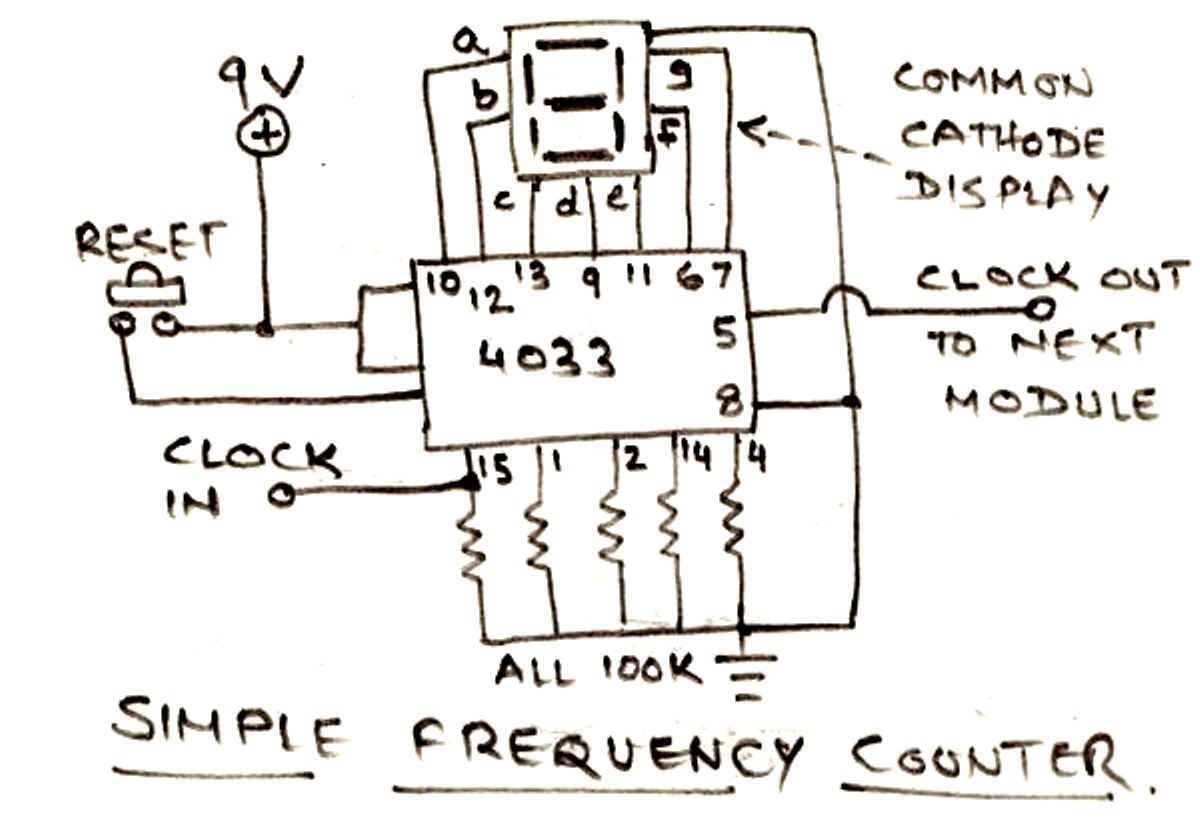 9V
+
RESET
a
b
c d e
f
g
COMMON
CATHODE
DISPLAY
10 12 13 9 11 6 7
4033
5
8
CLOCK OUT
TO NEXT
MODULE
CLOCK
IN
15 1 2 14 4
ALL 100K
SIMPLE FREQUENCY COUNTER.